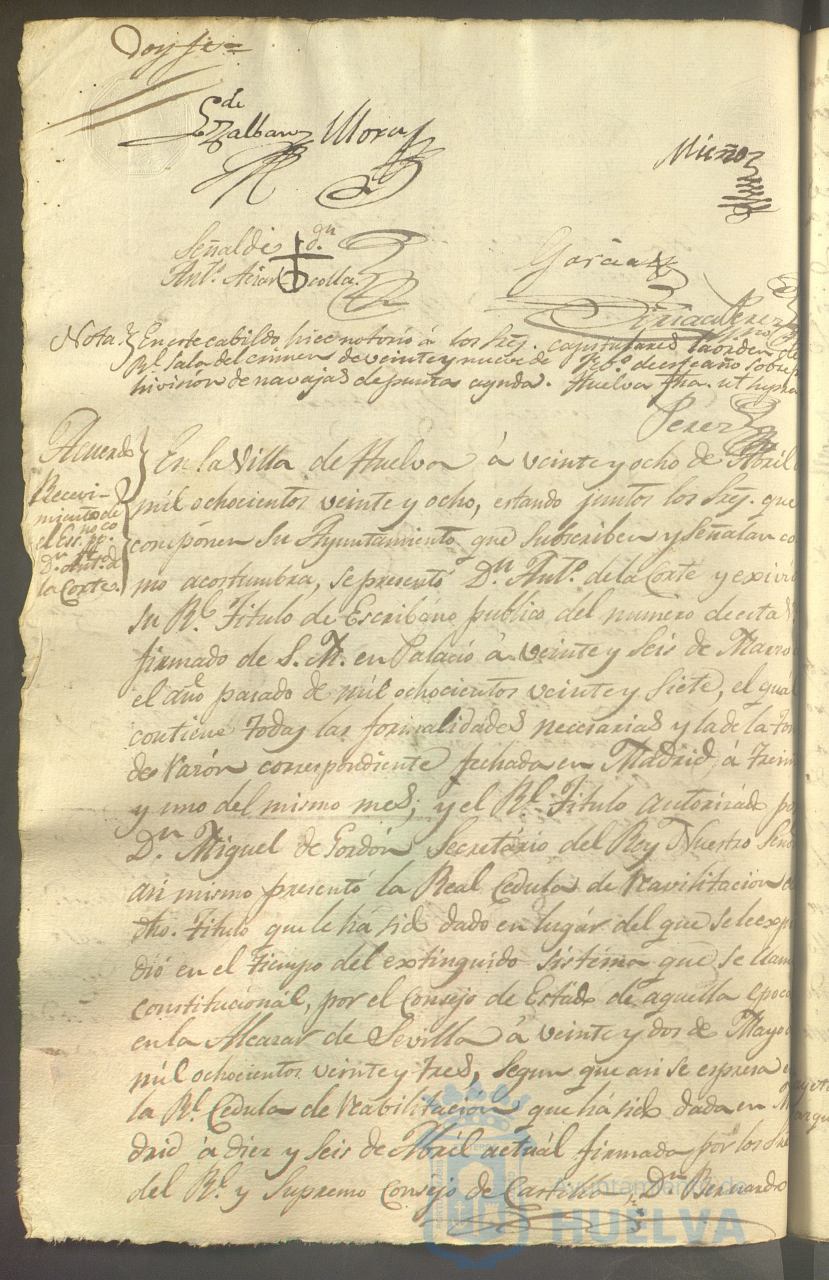 Doy fee
de
Zalbanz Mora
Muñoz
Señal de dn
Anto. Azar colla
Garcia
Perez
Nota } En este cabildo, hice notorio á los Srs. capitulares la orden de
Rl. Sala del crimen de veinte y nueve de Fbo. de este año sobre
hivision de navajas de punta aguda. Huelva fha. ut supra
Perez
Acuerdo
Recevi-
miento de
el Esno. pco.
Dn. Anto. de
la Corte.
En la Villa de Huelva á veinte y ocho de Abril
mil ochocientos veinte y ocho, estando juntos los Srs. que
componen su Ayuntamiento que subscriben y señalan co
mo acostumbra, se presentó Dn. Anto. de la Corte y exivió
su Rl. Titulo de Escribano publico del numero de esta
firmado de S. M. en Palacio á veinte y seis de Marzo
el año pasado de mil ochocientos veinte y siete, el qual
contiene todas las formalidades necesarias y la de la To
de razón correspondiente fechada en Madrid á trein
y uno del mismo mes; y el Rl. Titulo autorizado por
Dn. Miguel de Gordón Secretário del Rey Nuestro Señ
asi mismo presentó la Real Cedula de reavilitacion
dho. titulo que le há sido dado en lugár del que se le exp
dió en el tiempo del extinguido sistéma que se llam
constituciónal, por el Consejo de Estado de aquella epoca
en la Alcazar de Sevilla á veinte y dos de Mayo
mil ochocientos veinte y tres, segun que asi se expresa
la Rl. Cedula de reabilitación que há sido dada en Ma
drid á diez y seis de Abril actuál firmada por los
del Rl. y Supremo Consejo de Castilla, Dn. Bernardo
Ayuntamiento de
HUELVA